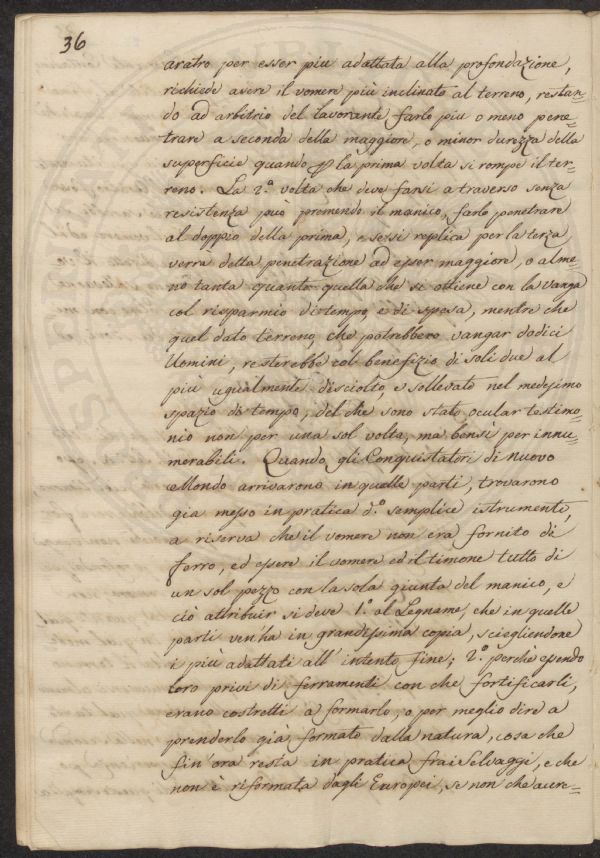 36
aratro per esser piu adattata alla profondazione,
richiede avere il vomere più inclinato al terreno, restan=
do ad arbitrio del lavorante farlo piu o meno pene=
trare a seconda della maggiore, o minor durezza della
superficie quando la prima volta si rompe il ter=
reno. La 2.ª volta che deve farsi a traverso senza
resistenza può premendo il manico, farlo penetrare
al doppio della prima, e se si replica per la terza
verra della penetrazione ad esser maggiore, o alme=
no tanta quanto quella che si ottiene con la Vanga
col risparmio di tempo, e di spesa, mentre che
quel dato terreno, che potrebbero vangar dodici
Uomini, resterebbe col benefizio di soli due al
piu ugualmente disciolto, e sollevato nel medesimo
spazio di tempo, del che sono stato ocular testimo=
nio non per una sol volta, ma bensì per innu=
merabili. Quando gli Conquistatori di nuovo
Mondo arrivarono in quelle parti, trovarono
gia messo in pratica d.º semplice istrumento,
a riserva che il vomere non era fornito di
ferro, ed essere il vomere ed il timone tutto di
un sol pezzo con la sola giunta del manico, e
ciò attribuir si deve 1.º al Legname, che in quelle
parti ven'ha in grandissima copia, sciegliendone
i più adattati all'intento fine; 2.º perchè essendo
loro privi di ferramenti con che fortificarli,
erano costretti a formarlo, o per meglio dire a
prenderlo già formato dalla natura, cosa che
fin'ora resta in pratica frai Selvaggi, e che
non è riformata dagli Europei, se non che acere=